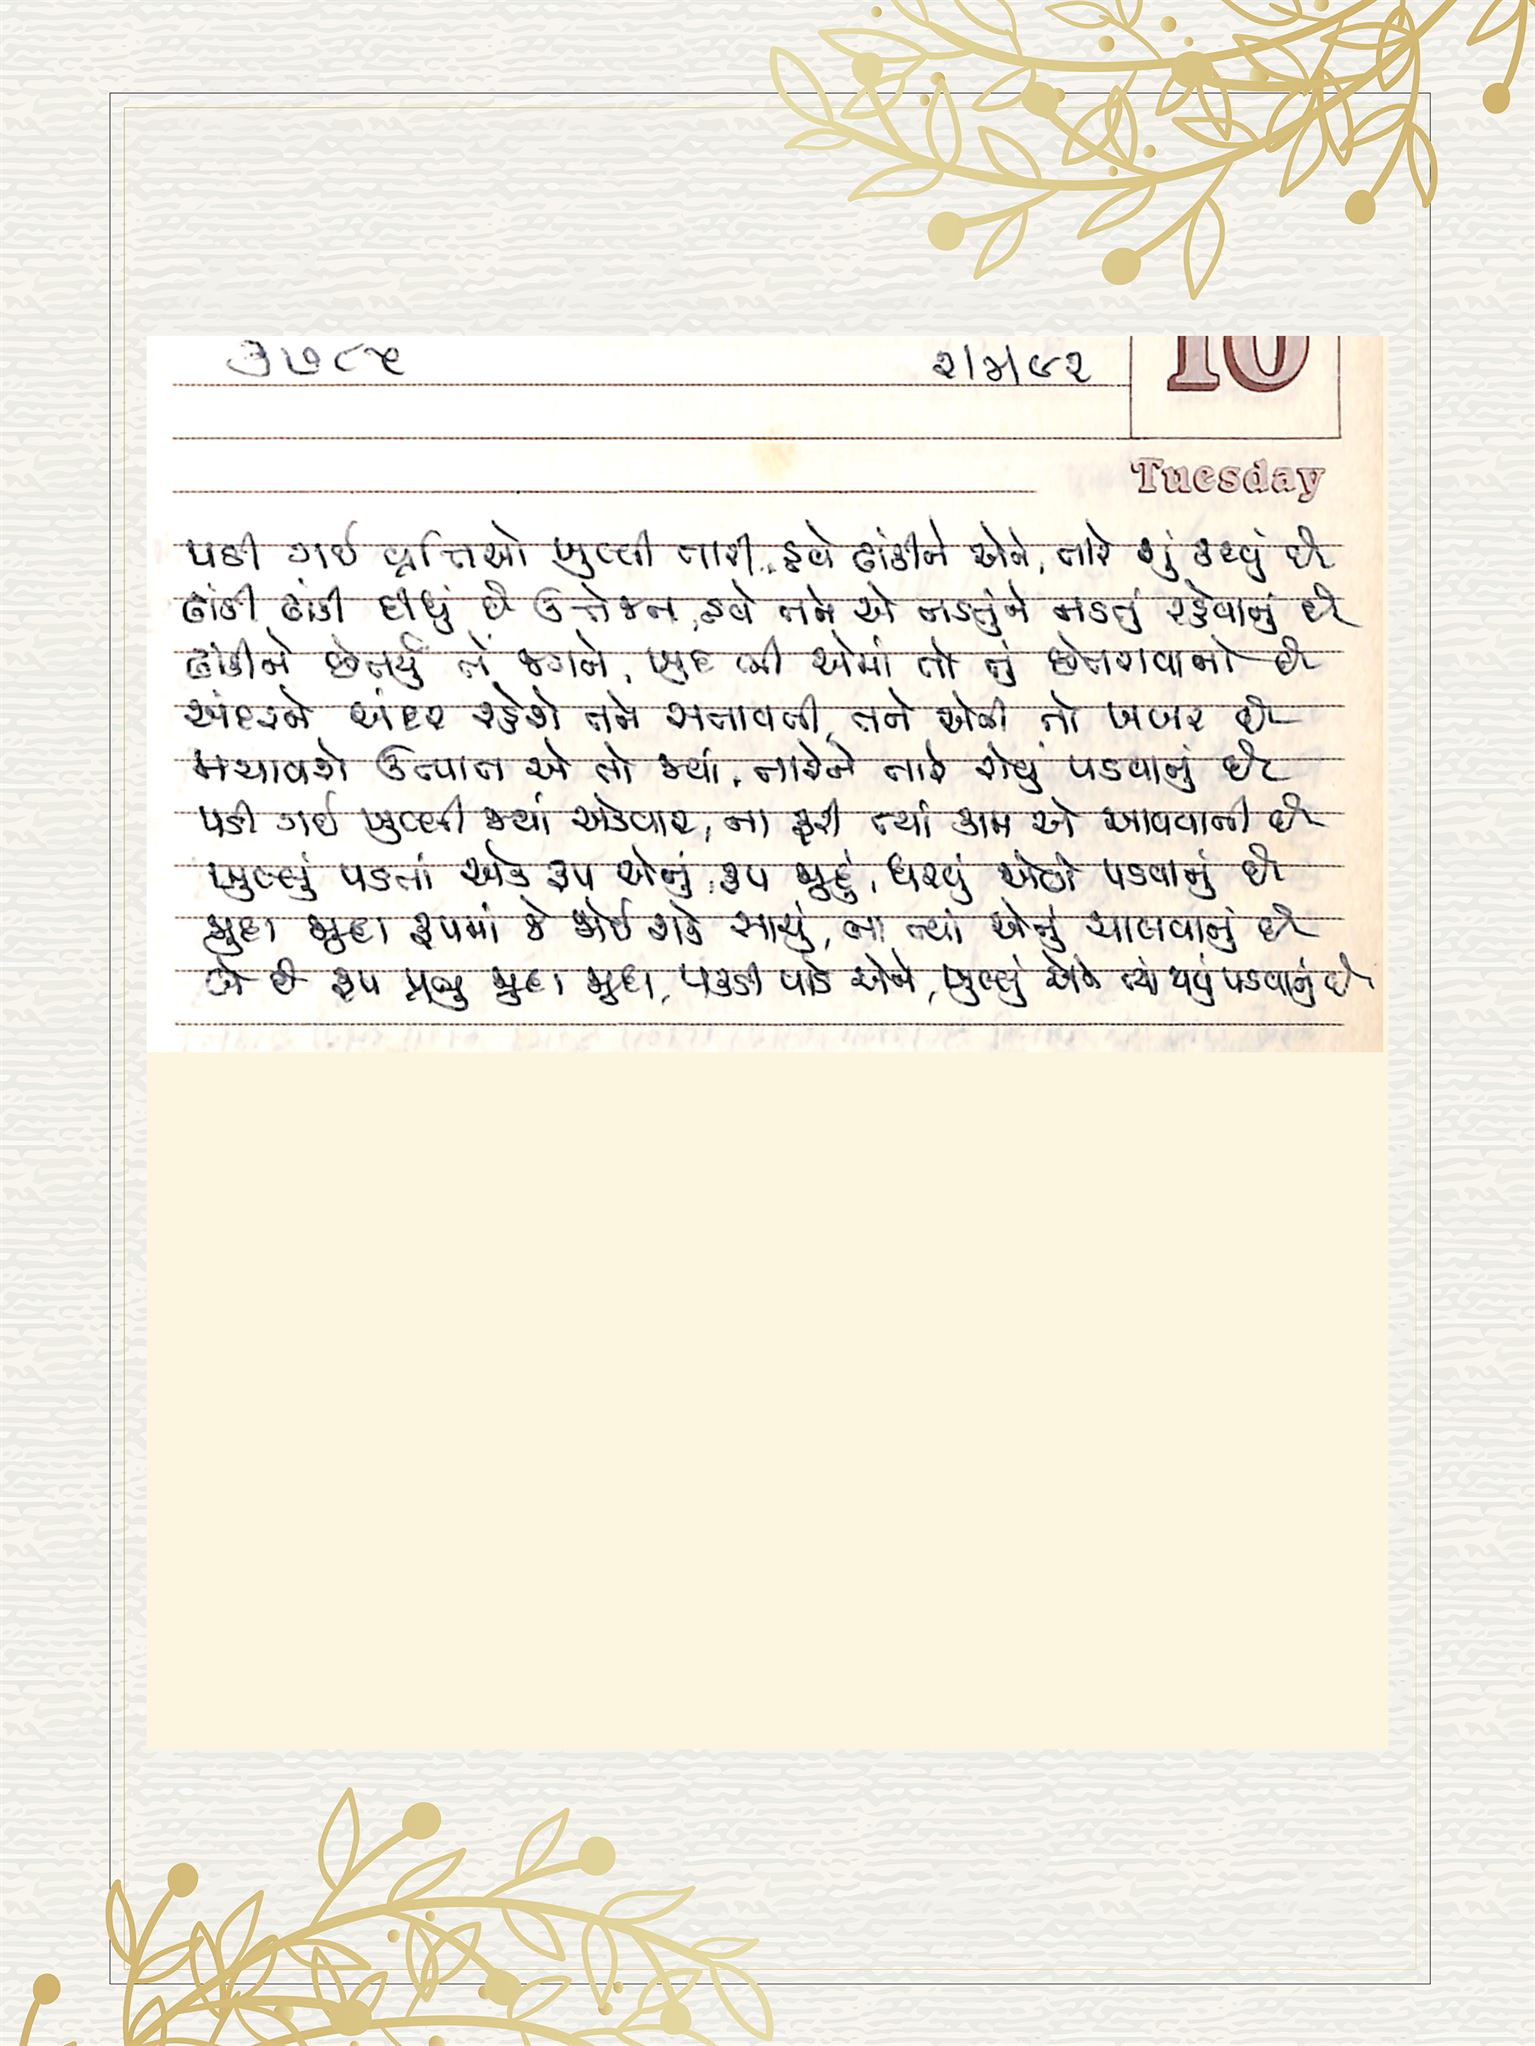 ૩૭૮૫
૨/૪/૯૨
10
Tuesday
પડી ગઈ વૃત્તિઓ ખુલ્લી તારી, હવે ઢાંકીને એને, તારે શું કરવું છે
ઢાંકી ઢાંકી દીધું છે ઉત્તેજન, હવે તને એ નડતુંને નડતું રહેવાનું છે
ઢાંકીને છેતર્યું તેં જગને, ખુદ ભી એમાં તો તું છેતરાવાનો છે
અંદરને અંદર રહેશે તને સતાવતી, તને એની તો ખબર છે
મચાવશે ઉત્પાત એ તો ક્યાં, તારેને તારે રોવું પડવાનું છે
પડી ગઈ ખુલ્લી જ્યાં એકવાર, ના ફરી ત્યાં કામ એ આવવાની છે
ખુલ્લું પડતાં એક રૂપ એનું, રૂપ જુદું, ધરવું એણે પડવાનું છે
જુદા જુદા રૂપમાં જે જોઈ શકે સાચું, ના ત્યાં એનું ચાલવાનું છે
બે છે રૂપ પ્રભુ જુદા જુદા, પકડી પાડે એને, ખુલ્લું એણે ત્યાં થવું પડવાનું છે